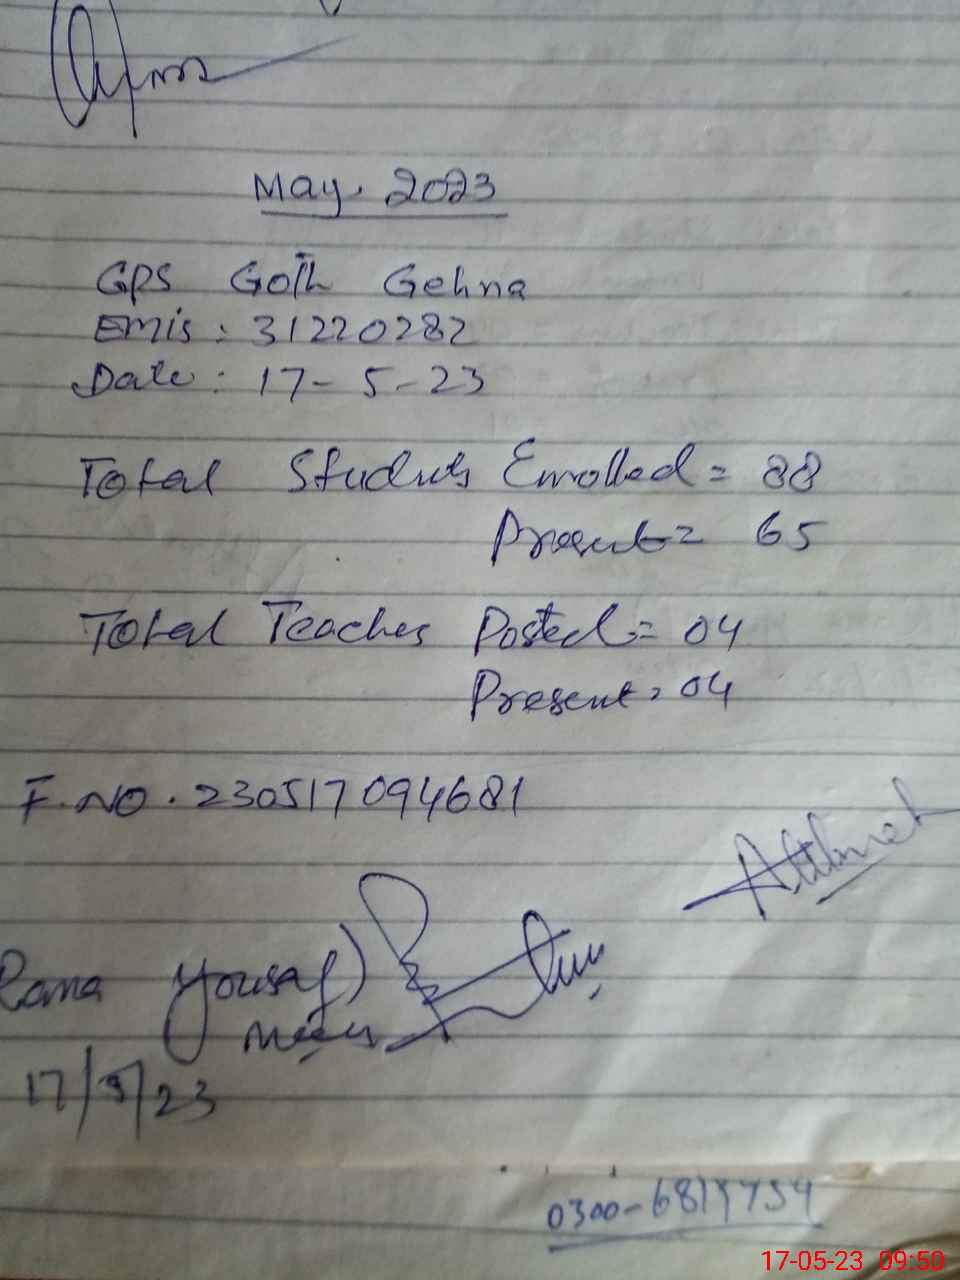 May. 2023
GPS Goth Gehna
Emis: 31220282
Date: 17-5-23
Total Students Enrolled = 88
Present = 65
Total Teaches Posted = 04
Present = 04
F.NO. 230517094681
Rana Yousaf)
17/5/23
17-05-23 09:50